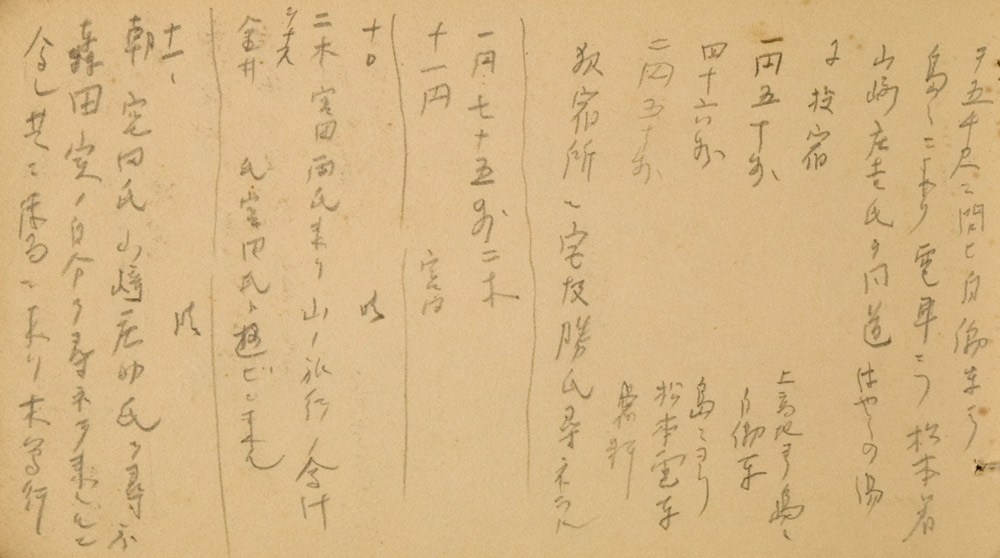 ヲ五千尺ニ問ヒ自働車ヲ
島々ニヨリ電車ニテ松本着
山崎庄吉氏ヲ同道はやしの湯
ニ投宿
一円五十銭 上高地ヨリ島々
自働車
四十六銭 島々ヨリ
松本電車
二円五十銭
夜宿所ニ宮坂勝氏尋ネラル
一円七十五銭 二木
十一円 宮田
十日 晴
二木 宮田両氏来リ山ノ旅行ノ会計
ヲナス
金井 氏宮田氏ト遊ビニ来ル
十一日 晴
朝 宮田氏山崎庄助氏ヲ尋ネ
森田実ノ自分ヲ尋ネテ来レルニ
会し共ニ湯ニ来リ